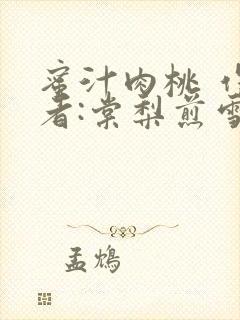 蜜汁肉桃
者:棠梨煎雪
孟鴆